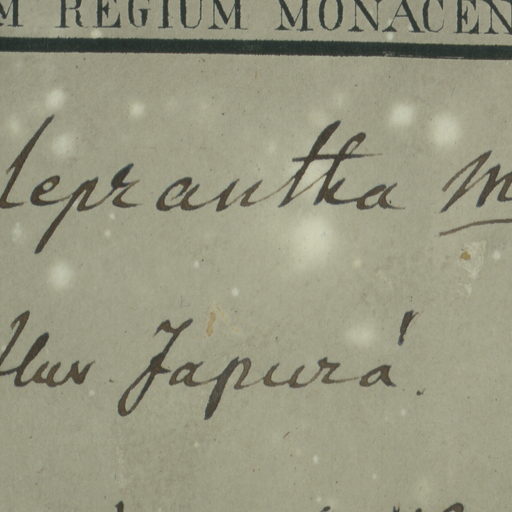 M REGIUM MONACEN
leprantha m
fluv. Japurá.